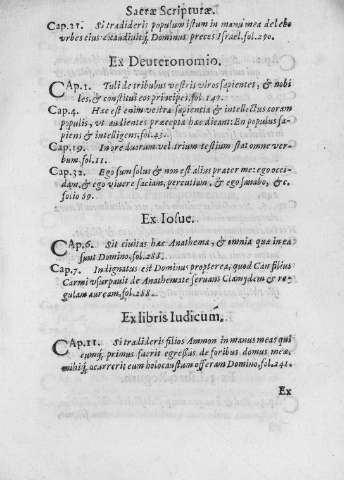 Sacræ Scripturæ.
Cap.21. Si tradideris populum istum in manu mea delebo
vrbes eius exaudiuitq́; Dominus preces Israel.fol.290.
Ex Deuteronomio.
CAp.1. Tuli de tribubus vestris viros sapientes, & nobi-
les, & constitui eos principes, fol.147.
Cap.4. Hæc est enim vestra sapientia & intellectus coram
populis, vt audientes præcepta hæc dicant: En populus sa-
piens & intelligens, fol.45.
Cap.19. In ore duorum vel trium testium stat omne ver-
bum.fol.11.
Cap.32. Ego sum solus & non est alius præter me: ego occi-
dam, & ego viuere faciam, percutiam, & ego sanabo, &c.
folio 89.
Ex Iosue.
CAp.6. Sit ciuitas hæc Anathema, & omnia quæ in ea
sunt Domino, fol.288.
Cap.7. Indignatus est Dominus propterea, quod Can filius
Carmi vsurpauit de Anathemate seruans Clamydem & re-
gulam auream, fol.288.
Ex libris Iudicum.
CAp.11. Si tradideris filios Ammon in manus meas qui
cumq́; primus fuerit egressus de foribus domus meæ,
mihiq́; occurrerit eum holocaustum offeram Domino, fol.241.
Ex